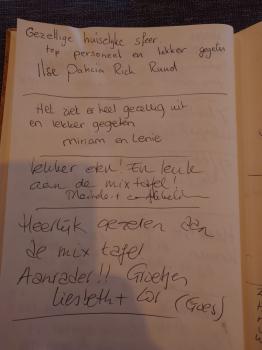 Gezellige huiselijke sfeer.
top personeel en lekker gegeten
Ilse Patricia Rick Ruud
Het ziet er heel gezellig uit
en lekker gegeten
Miriam en Lenie
lekker eten! En leuk
aan de mix tafel!
Heerlijk gegeten aan
de mix tafel
Aanrader!! Groetjes
Liesbeth + Cor (Goes)